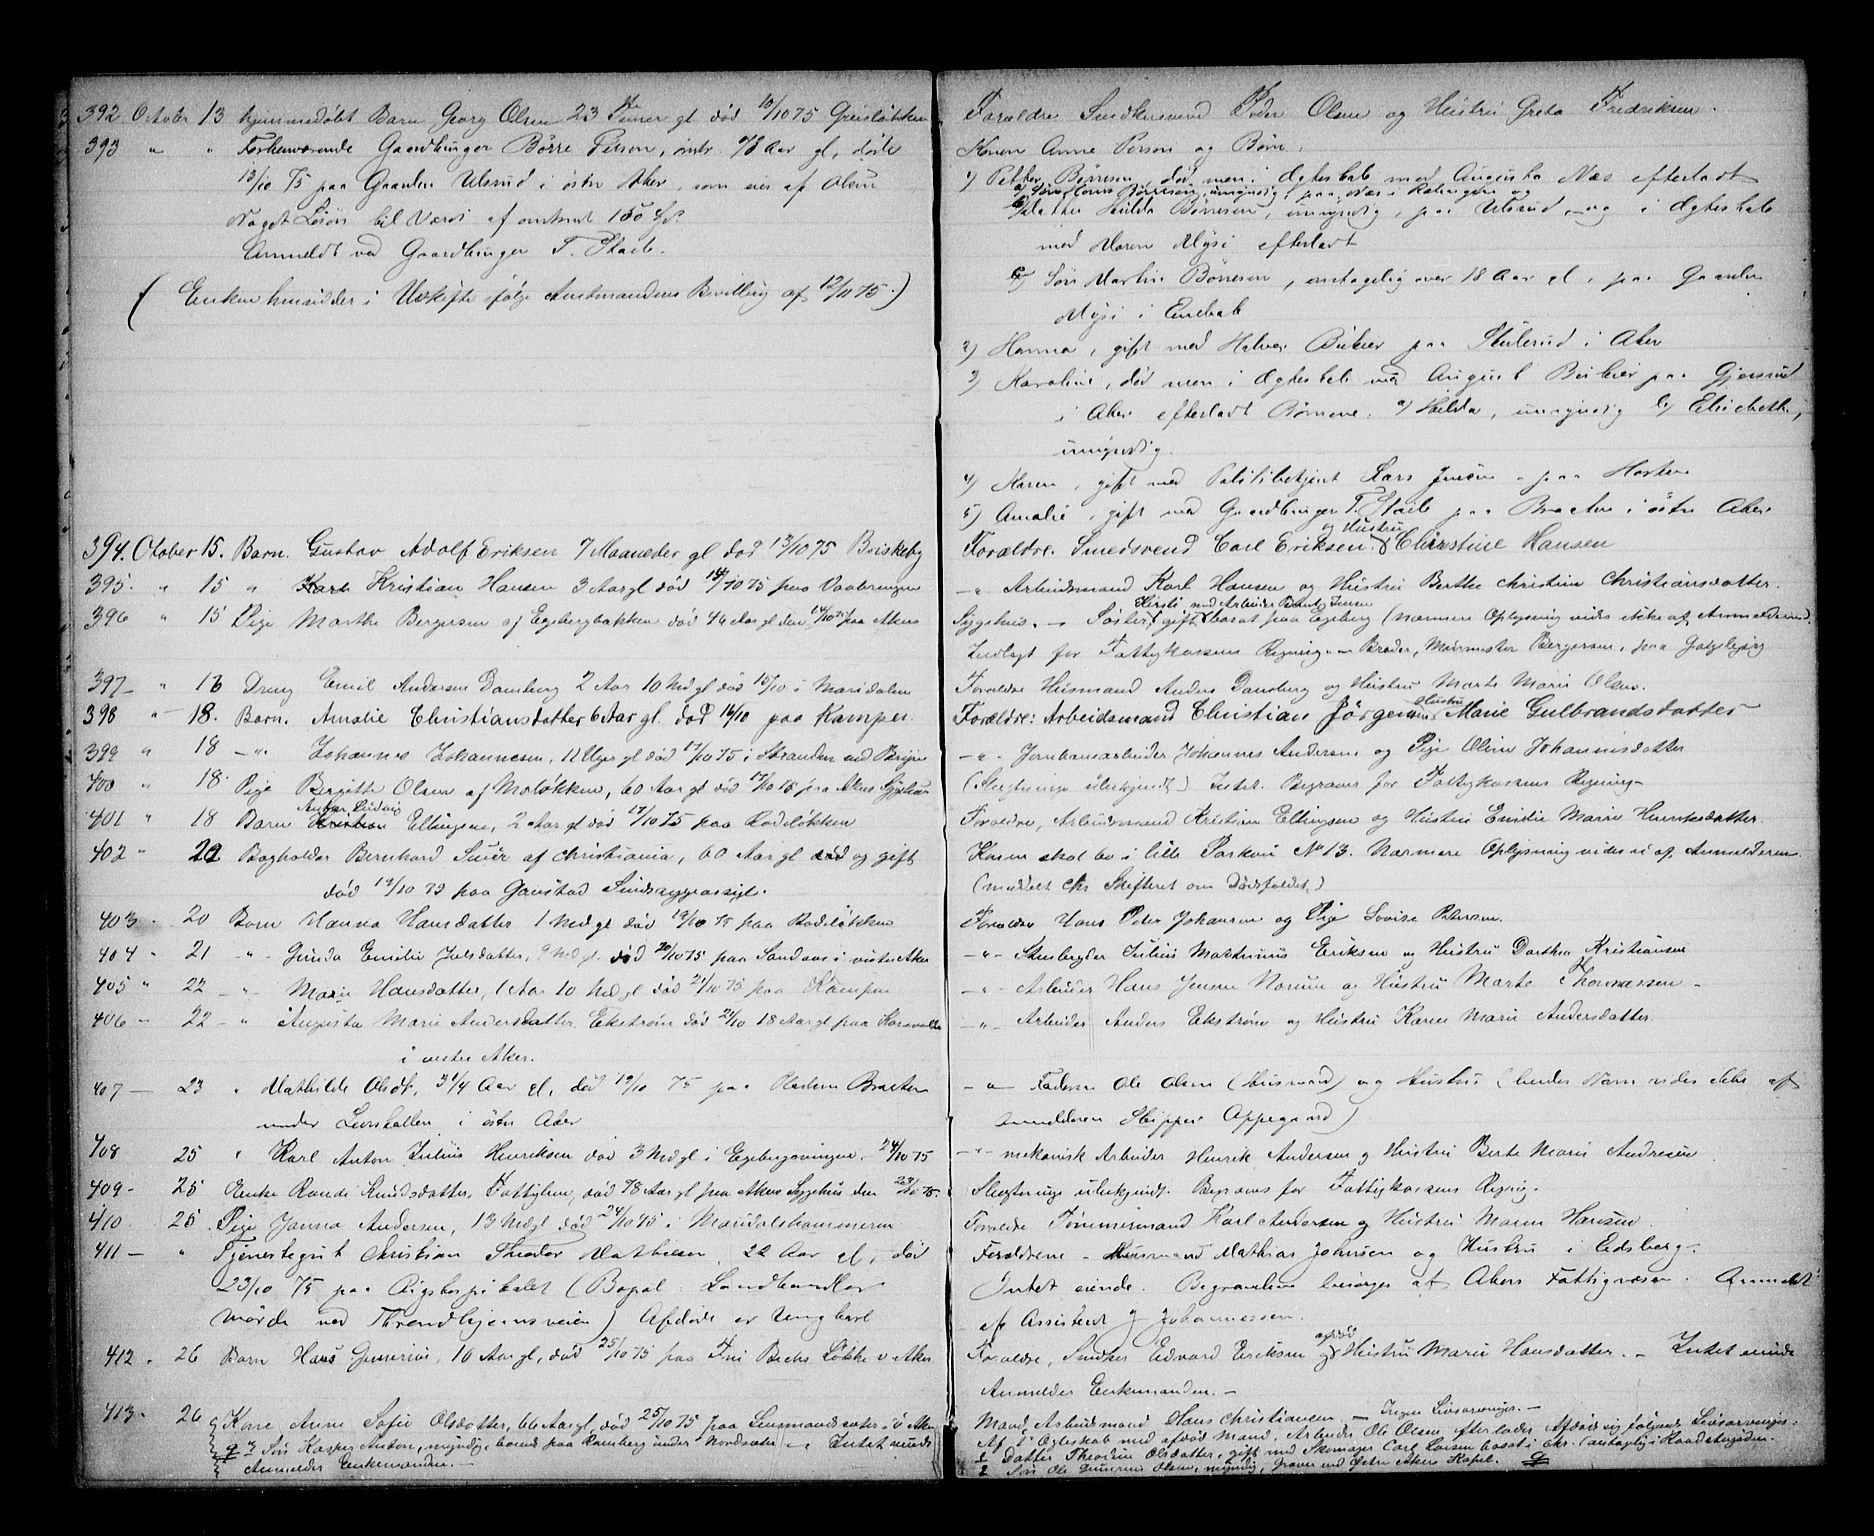 392 October 13 hjemmedøbt Barn Georg Olsen 23 Timer gl død 10/10 75
393 " " Forhenværende Gaardbruger Börre Person, omtr. 78 Aar gl, døde
13/10 75 paa Gaarden Ulsrud i östre Aker, som eies af
Noget Lösöre til Værdi af omtrent 150 Spd.
Anmeldt ved Gaardbruger T. Stade.
(Enken hensidder i Uskifte ifølge Amtmandens Bevilling af 12/11 75.)
394. October 15. Barn. Gustav Adolf Eriksen 7 Maaneder gl død 13/10 75 Briskeby
395. " 15 " Karl Kristian Hansen 3 Aar gl død 14/10 75 paa Vaalerengen
396 " 15 Pige Marthe Bergersen af Egebergbakken død 46 Aar gl den 14/10 75 paa Akers
397 - " 16 Dreng Emil Andersen Damberg 2 Aar 10 Mdr gl død 15/10 i Maridalen
398 " 18. Barn. Amalie Christiansdatter 6 Aar gl. død 16/10 paa Kampen.
399 " 18 -"- Johannes Johannesen, 11 Uger gl død 17/10 75 i Stranden ved Bryn
400 " 18. Pige Birgitte Olsen af Moløkken, 60 Aar gl død 17/10 75 paa Akers Sygehus
401 " 18 Barn Anton Ludvig Ellingsen, 2 Aar gl død 17/10 75 paa Rodeløkken
402 " 20 Bogholder Bernhard af Christiania, 60 Aar gl og gift
død 19/10 75 paa Gaustad Sindssygeasyl.
403 - 20 Barn Hanna Hansdatter 1 Md gl død 19/10 75 paa Rodeløkken
404 " 21 -"- Gunda Emilie Julsdatter, 9 Md gl. død 20/10 75 paa Sandaas i vestre Aker
405 " 22 -"- Marie Hansdatter, 1 Aar 10 Md gl død 21/10 75 paa Kampen
406 - 22 - " Augusta Marie Andersdatter Ekstrøm død 21/10 18 Aar gl paa
i vestre Aker.
407 - 23 " Mathilde Olsdt. 3 1/4 Aar gl, død 19/10 75 paa Pladsen Braaten
under i östre Aker
408 25 " Karl Anton Julius Henriksen død 3 Md gl i Egebergsvingen 24/10 75
409 - 25 Enke Randi Knudsdatter, Fattiglem, død 78 Aar gl paa Akers Sygehus den 23/10 75.
410 25 Pige Janna Andersen, 13 Md gl død 24/10 75 i Maridalshammeren
411 - " Tjenestegut Christian Theodor Mathesen, 22 Aar gl, død
23/10 75 paa Rigshospitalet (Bopæl Landhandler
ved Throndhjemsveien) Afdøde er Ungkarl
412 - 26 Barn Hans Gunerius, 10 Aar gl, død 25/10 75 paa Fru Bechs Løkke v Aker
413 - 26 Kone Anne Sofie Olsdatter, 66 Aar gl, død 25/10 75 paa Lensmandssæter i ö Aker
3 Søn Kasper Anton, myndig, boende paa Ramberg under Nordsæter - Intet eiende
Anmelder Enkemanden. -
Forældre Peder Olsen og Hustru Grete Fredriksen.
Konen Anne Person og Börn:
1) Petter Börresen, død men i Ægteskab med Augusta Næs efterladt
a) Søn Hans Börresen, umyndig, paa Næs i og
b) Datter Hilda Börresen, umyndig, paa Ulsrud, og i Ægteskab
med Maren Mysi efterladt
c) Søn Martin Börresen, antagelig over 18 Aar gl, paa Gaarden
Mysi i Enebak
2) Hanna, gift med Halvor paa i Aker
3) Karoline, død men i Ægteskab med August paa Gjersrud
i Aker efterladt Börnene: a) Hilda, umyndig b) Elisabeth,
umyndig.
4) Karen, gift med Politibetjent Lars Jensen paa
5) Amalie, gift med Gaardbruger T. Stade paa Braaten i östre Aker
Forældre. Smedsvend Carl Eriksen og Hustru Christine Hansen
-"- Arbeidsmand Karl Hansen og Hustru Berthe Christine Christiansdatter.
Sygehus. - Søster gift Kirsti med Arbeider Jensen bosat paa Egeberg (nærmere Oplysning vides ikke af Anmelderen)
Indlagt for Fattigkassens Regning - Broder, Murmester Bergersen, paa Galgeberg
Forældre Husmand Anders Damberg og Hustru Marte Marie Olsen.
Forældre: Arbeidsmand Christian Jörgensen Hustru Marie Gulbrandsdatter
-"- Jernbanearbeider Johannes Andersen og Pige Oline Johannisdatter
(Slægtninge ubekjendt) Intet. Begraves for Fattigkassens Regning -
Forældre, Arbeidsmand Kristian Ellingsen og Hustru Emilie Marie
Konen skal bo i lille No 13. Nærmere Oplysning vides ei af Anmelderen.
(meddelt Chr Skifteret om Dødsfaldet.)
Forældre Hans Peter Johansen og Pige Lovise Petersen.
-"- Stenhugger Julius Eriksen og Hustru Dorthea Kristiansen
-"- Arbeider Hans Jensen og Hustru Marte Thomassen -
-"- Arbeider Anders Ekstrøm og Hustru Karen Marie Andersdatter.
-"- Faderen Ole Olsen (Husmand) og Hustru (hendes Navn vides ikke af
anmelderen Skipper Oppegaard)
-"- mekanisk Arbeider Henrik Andersen og Hustru Berte Marie Andresen
Slægtninge ubekjendt. Begraves for Fattigkassens Regning.
Forældre Tömmermand Karl Andersen og Hustru Maren Hansen.
Forældrene - Husmand Mathias Johnsen og Hustru i Eidsberg -
Intet eiende. Begravelsen besørges af Akers Fattigvæsen. Anmeldt
af Assistent J Johannessen.
Forældre, Snedker Edvard Eriksen og afdød Hustru Marie Hansdatter. - Intet eiende
Anmelder Enkemanden. -
Mand, Arbeidsmand Hans Christiansen - Ingen Livsarvinger. -
Af 1. Ægteskab med afdød Mand, Arbeider Ole Olsen efterlader Afdøde sig følgende Livsarvinger:
1 Datter Theodine Olsdatter, gift med Skomager Carl Larsen bosat i Chr. (antagelig i
2 Søn Ole Gunerius Olsen, myndig, Graver ved Østre Akers Kapel.